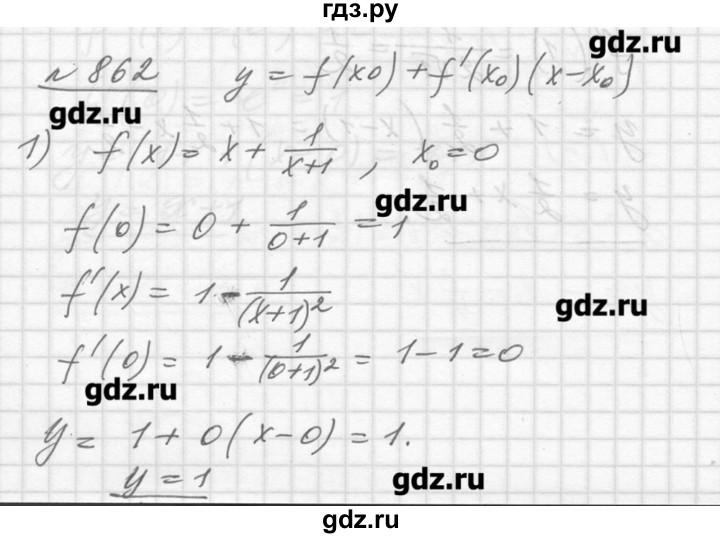 гдз.ру
gdz.ru
№ 862 y = f(x0) + f'(x₀)(x-x₀)
gdz.ru
1) f(x) = x + 1/(x+1), x₀=0
gdz.ru
f(0) = 0 + 1/(0+1) = 1
f'(x) = 1 - 1/(x+1)²
gdz.ru
f'(0) = 1 - 1/(0+1)² = 1-1=0
gdz.ru
y = 1 + 0(x-0) = 1.
y = 1
gdz.ru
gdz.ru